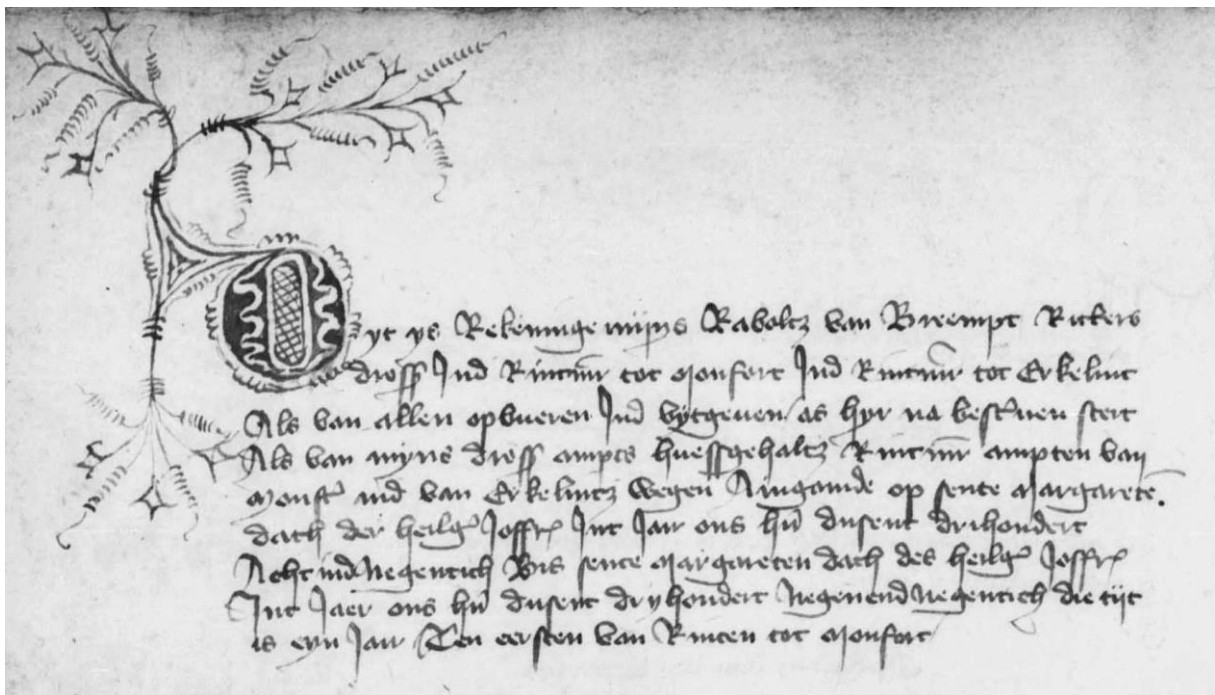 Dyt ys Rekeninge mijns Raboltz van Breempt Ritters
dross Ind Rintmr tot Monfort Ind Rintmr tot Erkelint
Als van allen opbueren Ind vytgeven as hyr na bescreuen steit
Als van myns dross ampts huessgehaltz Rintmr ampten van
Monft ind van Erkelintz wegen Aingainde op sente Margareten
dach der heilger Joffrn Int Jair ons hn dusent drihondert
Acht ind Negentich Bis sente Margareten dach des heilger Joffrn
Int Jaer ons hn dusent dryhondert Negenend Negentich die tijt
is eyn Jair Ten eersten van Rinten tot Monfort